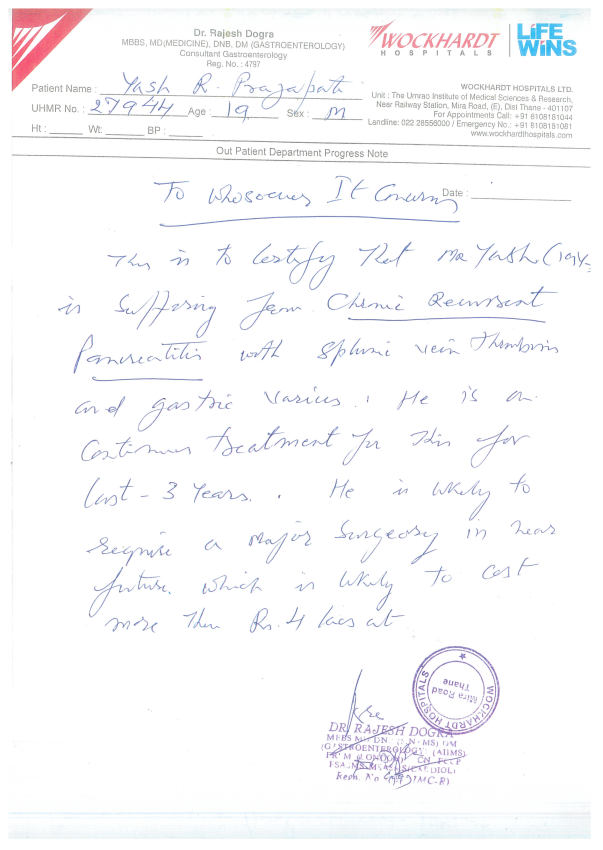 Dr. Rajesh Dogra
MBBS, MD(MEDICINE), DNB, DM (GASTROENTEROLOGY)
Consultant Gastroenterology
Reg. No. : 4797
WOCKHARDT
HOSPITALS
LiFE
WiNS
Patient Name : Yash R. Prajapati
UHMR No. : 27944 Age : 19 Sex : M
Ht : Wt: BP :
WOCKHARDT HOSPITALS LTD.
Unit : The Umrao Institute of Medical Sciences & Research,
Near Railway Station, Mira Road, (E), Dist Thane - 401107
For Appointments Call: +91 8108181044
Landline: 022 28556000 / Emergency No.: +91 8108181081
www.wockhardthospitals.com
Out Patient Department Progress Note
Date :
To Whosoever It Concerns
This is to Certify that Mr Yash (19Y
is Suffering from Chronic Recurrent
Pancreatitis with Splenic vein Thrombosis
and gastric varices. He is on
Continuous treatment for this for
last - 3 Years. He is likely to
require a major Surgeory in near
future, which is likely to cost
more then Rs. 4 lacs at
WOCKHARDT HOSPITALS
Mira Road
Thane
DR. RAJESH DOGRA
(GASTROENTEROLOGY) (AIIMS)